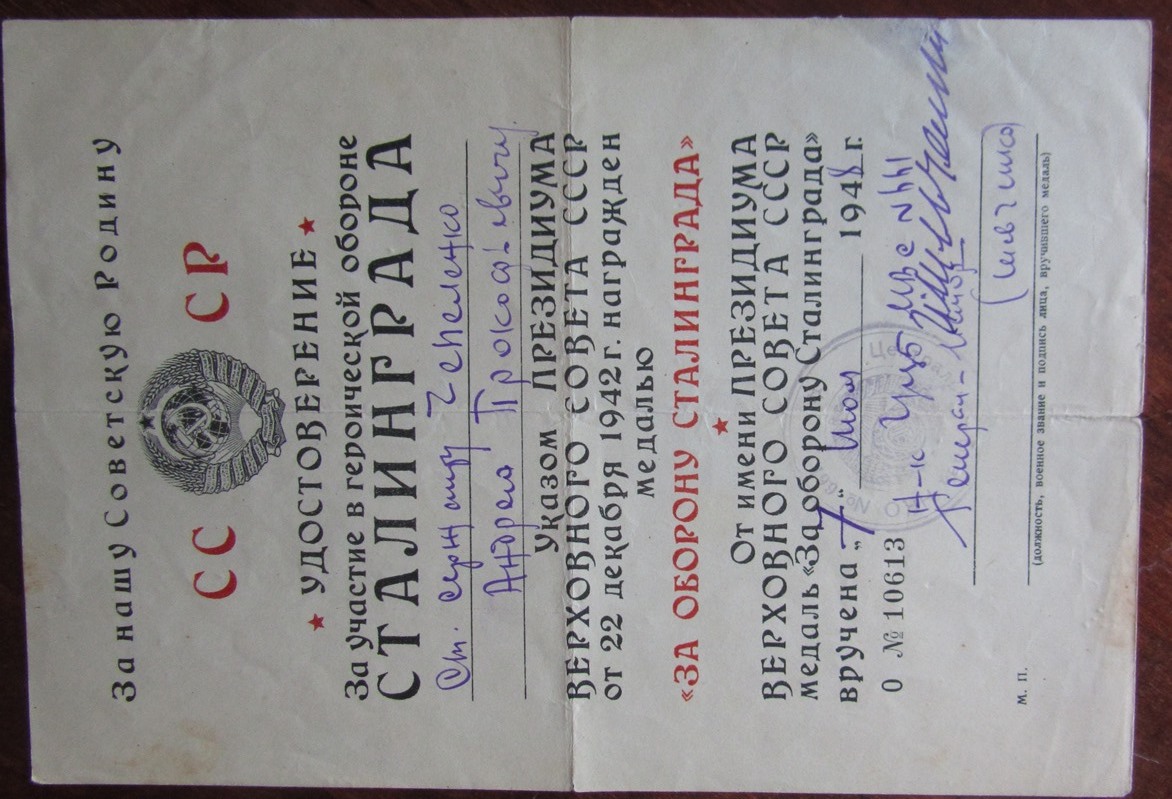 За нашу Советскую Родину
СС СР
УДОСТОВЕРЕНИЕ
За участие в героической обороне
СТАЛИНГРАДА
Ст. сержанту
Андрею
Указом ПРЕЗИДИУМА
ВЕРХОВНОГО СОВЕТА СССР
от 22 декабря 1942 г. награжден
медалью
«ЗА ОБОРОНУ СТАЛИНГРАДА»
От имени ПРЕЗИДИУМА
ВЕРХОВНОГО СОВЕТА СССР
медаль «За оборону Сталинграда»
вручена „7“ 1948 г.
О № 10613
Н-к
Генерал-майор
М. П.
(должность, военное звание и подпись лица, вручившего медаль)